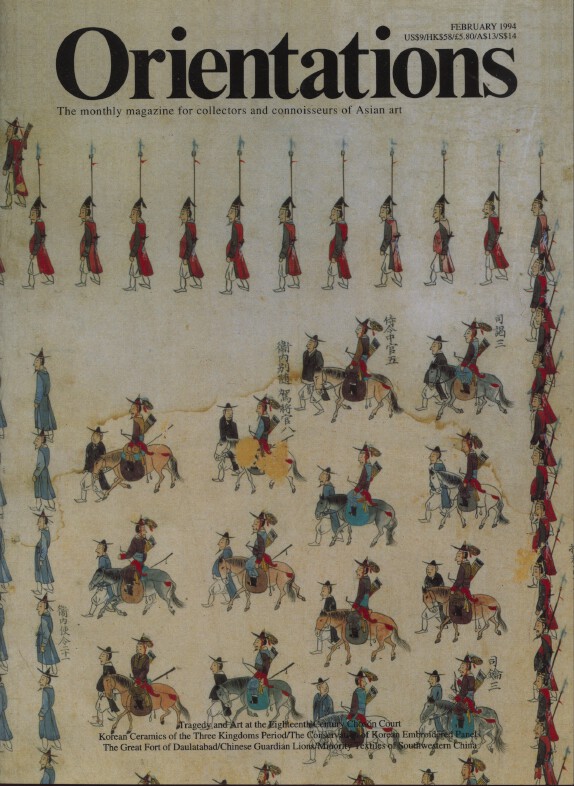 FEBRUARY 1994
US$9/HK$58/£5.80/A$13/S$14
Orientations
The monthly magazine for collectors and connoisseurs of Asian art
司謁三
侍衛中官五
駕前官八
衛內別隨
衛內使令二十
司鑰三
Tragedy and Art at the Eighteenth Century Chosŏn Court
Korean Ceramics of the Three Kingdoms Period/The Conservation of Korean Embroidered Panels
The Great Fort of Daulatabad/Chinese Guardian Lions/Minority Textiles of Southwestern China